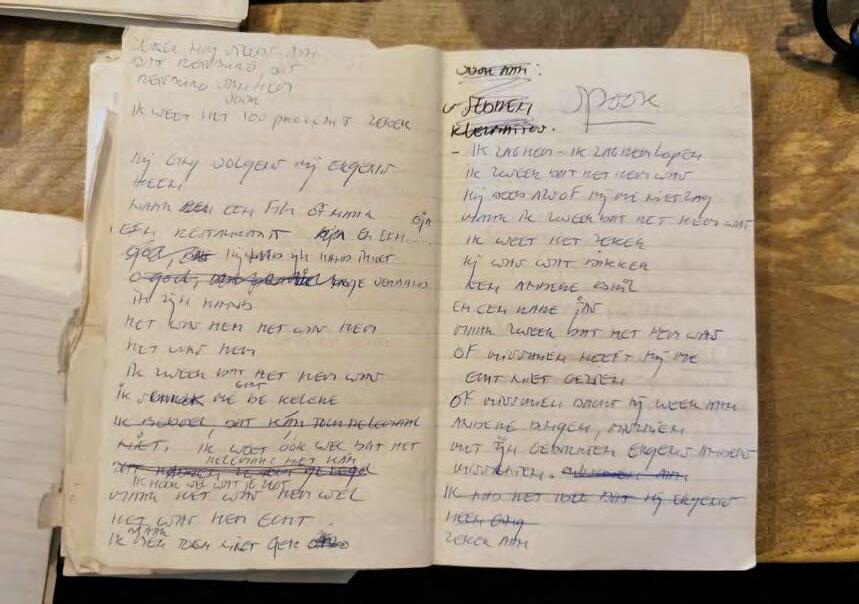 ZEKER
DAT DIT
IK WEET HET 100 PROCENT ZEKER
HIJ GING VOLGENS MIJ ERGENS
HEEN
NAAR EEN FILM OF NAAR
EEN RESTAURANT EN EEN.....
IN ZIJN HAND
HET WAS HEM HET WAS HEM
HET WAS HEM
IK ZWEER DAT HET HEM WAS
IK ME DE KELERE
IK BEDOEL, DAT KÁN TOCH HELEMAAL
NIET. IK WEET ÓÓK WEL DAT HET
HELEMAAL NIET KAN
IK HOOR WEL WAT IK ZEG
MAAR HET WAS HEM WEL
HET WAS HEM ECHT
MAAR
IK BEN TOCH NIET GEK
VOOR AAN:
SPOOK
- IK ZAG HEM - IK ZAG HEM LOPEN
IK ZWEER DAT HET HEM WAS
HIJ DEED ALSOF HIJ ME NIET ZAG
MAAR IK ZWEER DAT HET HEM WAS
IK WEET HET ZEKER
HIJ WAS WAT DIKKER
EEN ANDERE BRIL
EN EEN RARE JAS
MAAR ZWEER DAT HET HEM WAS
OF MISSCHIEN HEEFT HIJ ME
ECHT NIET GEZIEN
OF MISSCHIEN DACHT HIJ WEER AAN
ANDERE DINGEN, MISSCHIEN
MET ZIJN GEDACHTEN ERGENS ANDERS
MISSCHIEN.
IK HAD HET IDEE DAT HIJ ERGENS
HEEN GING
ZEKER AAN